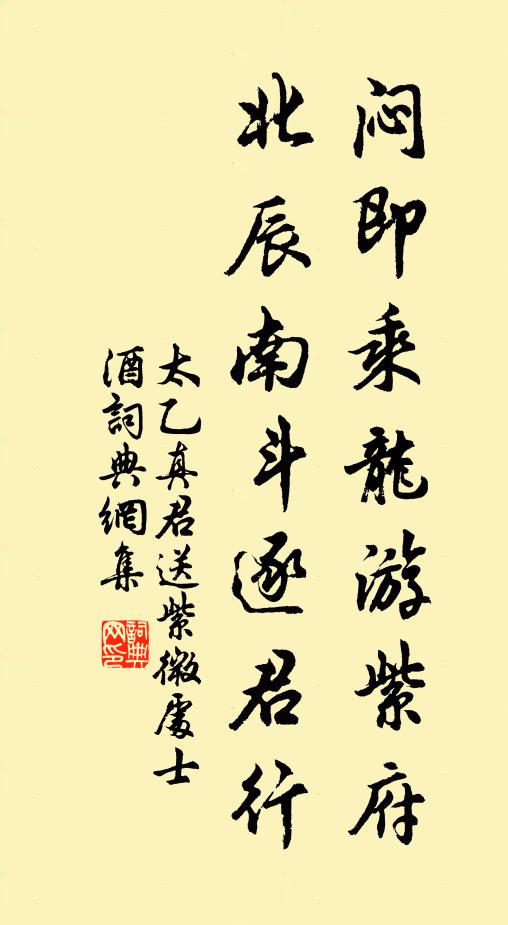 闷即乘龍游紫府
北辰南斗逐君行
太乙真君送紫微處士
酒詞典網集
詞典網印